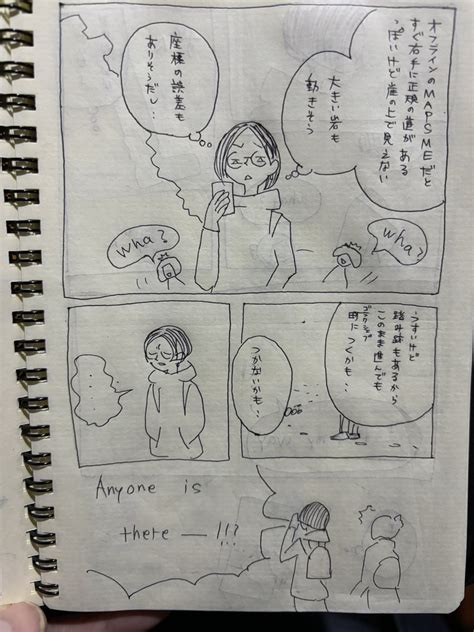 オフラインのMAPS MEだと
すぐ右手に正規の道がある
っぽいけど崖の上で見えない
大きい岩も
動きそう
座標の誤差も
ありそうだし・・
wha?
wha?
うすいけど
踏み跡もあるから
このまま進んでも
町につくかも・・
つかないかも・・
・・・
Anyone is
there ー!!?